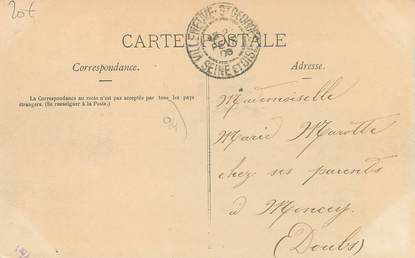 20€
CARTE POSTALE
VILLENEUVE-ST GEORGES
SEINE ET OISE
Correspondance.
Adresse.
La Correspondance au recto n'est pas acceptée par tous les pays
étrangers. (Se renseigner à la Poste.)
94
Mademoiselle
Marie Marotte
chez ses parents
à Moncey.
(Doubs)